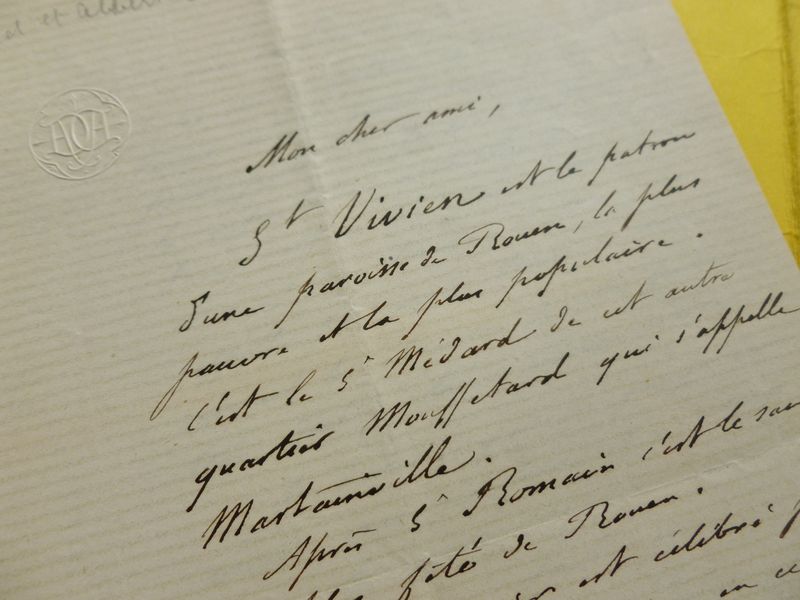 et
Mon cher ami,
St Vivien est le patron
d'une paroisse de Rouen, la plus
pauvre et la plus populaire.
c'est le St Médard de cet autre
quartier Mouffetard qui s'appelle
Martainville.
Après St Romain c'est le
fêté de Rouen.
est célébré
en